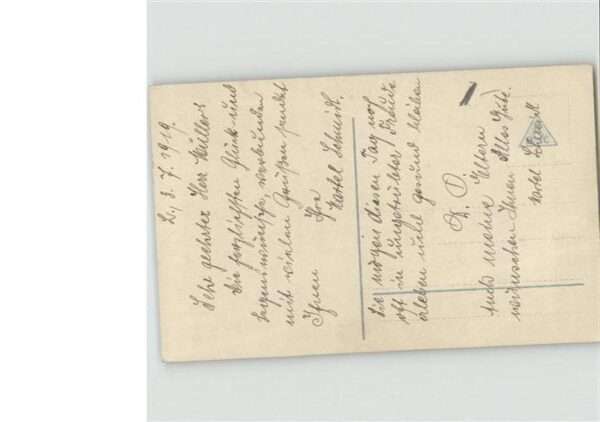 L., d. 7. 1919.
Sehr geehrter Herr Müller!
Die herzlichsten Glück- und
Segenswünsche, verbunden
mit vielen Grüßen sendet
Ihnen Ihre
Hertel Schmidt.
Sie mögen diesen Tag noch
oft in ungetrübter Freude
erleben und gesund bleiben
D. O.
Auch meine Eltern
wünschen Ihnen Alles Gute!